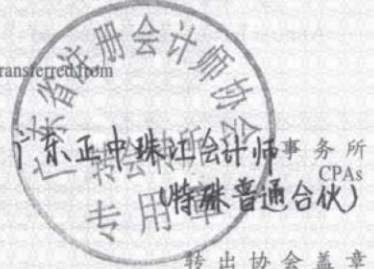 transferred from
广东省注册会计师协会
广东正中珠江会计师事务所
CPAs
(特殊普通合伙)
专用章
转出协会盖章